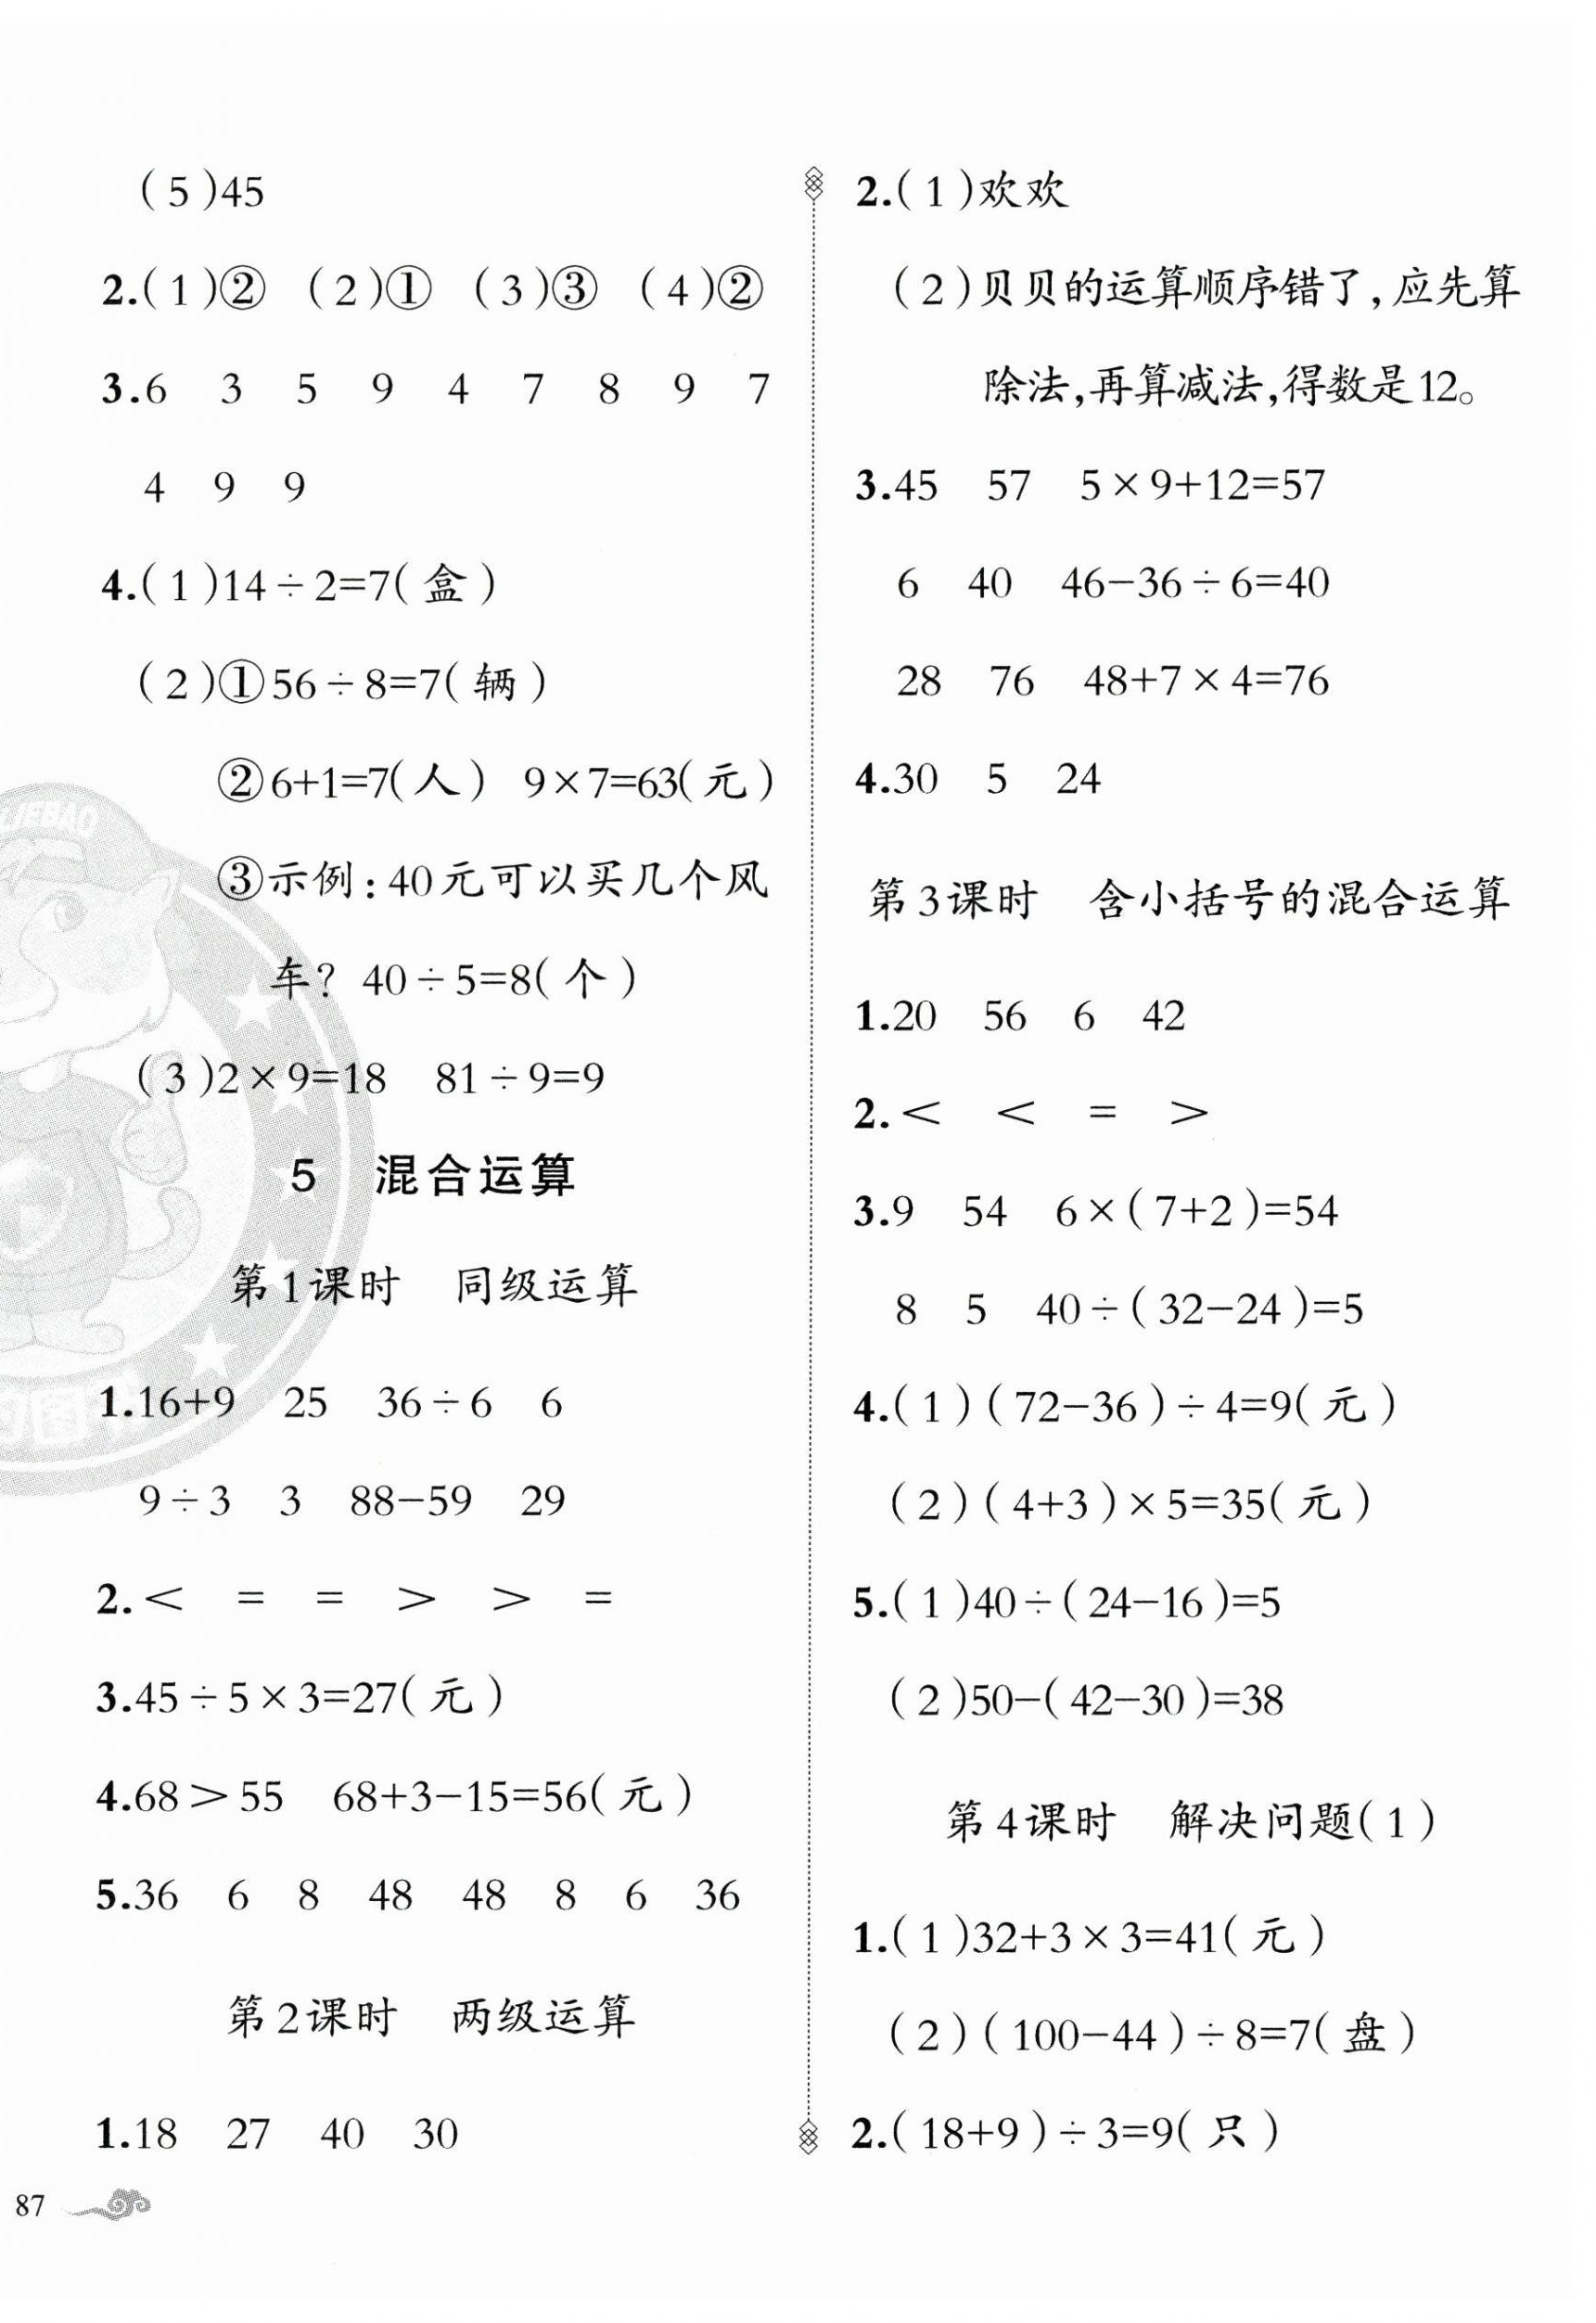 (5)45
2.(1)② (2)① (3)③ (4)②
3.6 3 5 9 4 7 8 9 7
4 9 9
4.(1)14÷2=7(盒)
(2)①56÷8=7(辆)
②6+1=7(人) 9×7=63(元)
③示例:40元可以买几个风
车? 40÷5=8(个)
(3)2×9=18 81÷9=9
5 混合运算
第1课时 同级运算
1.16+9 25 36÷6 6
9÷3 3 88-59 29
2.< = = > > =
3.45÷5×3=27(元)
4.68>55 68+3-15=56(元)
5.36 6 8 48 48 8 6 36
第2课时 两级运算
1.18 27 40 30
87
2.(1)欢欢
(2)贝贝的运算顺序错了,应先算
除法,再算减法,得数是12。
3.45 57 5×9+12=57
6 40 46-36÷6=40
28 76 48+7×4=76
4.30 5 24
第3课时 含小括号的混合运算
1.20 56 6 42
2.< < = >
3.9 54 6×(7+2)=54
8 5 40÷(32-24)=5
4.(1)(72-36)÷4=9(元)
(2)(4+3)×5=35(元)
5.(1)40÷(24-16)=5
(2)50-(42-30)=38
第4课时 解决问题(1)
1.(1)32+3×3=41(元)
(2)(100-44)÷8=7(盘)
2.(18+9)÷3=9(只)